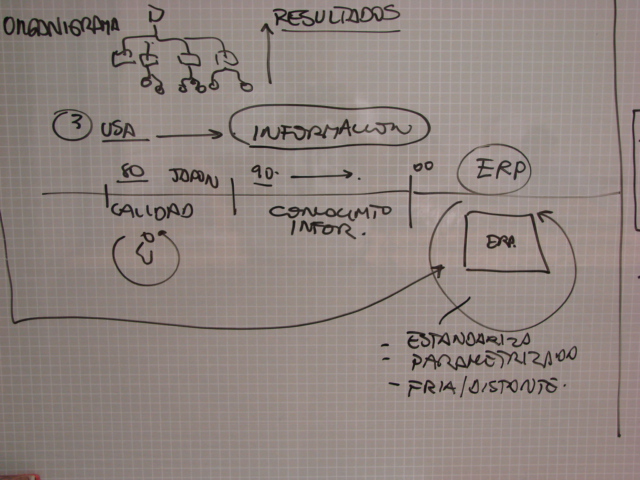 ORGANIGRAMA
D
RESULTADOS
3 USA → INFORMACION
80 JAPON 90. → . 00 ERP
CALIDAD CONOCIMTO
INFOR.
ERP.
- ESTANDARIZD
- PARAMETRIZADO
- FRIA/DISTANTE.